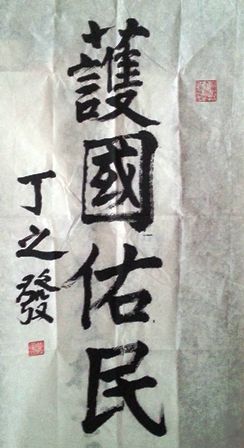 護國佑民
丁之發